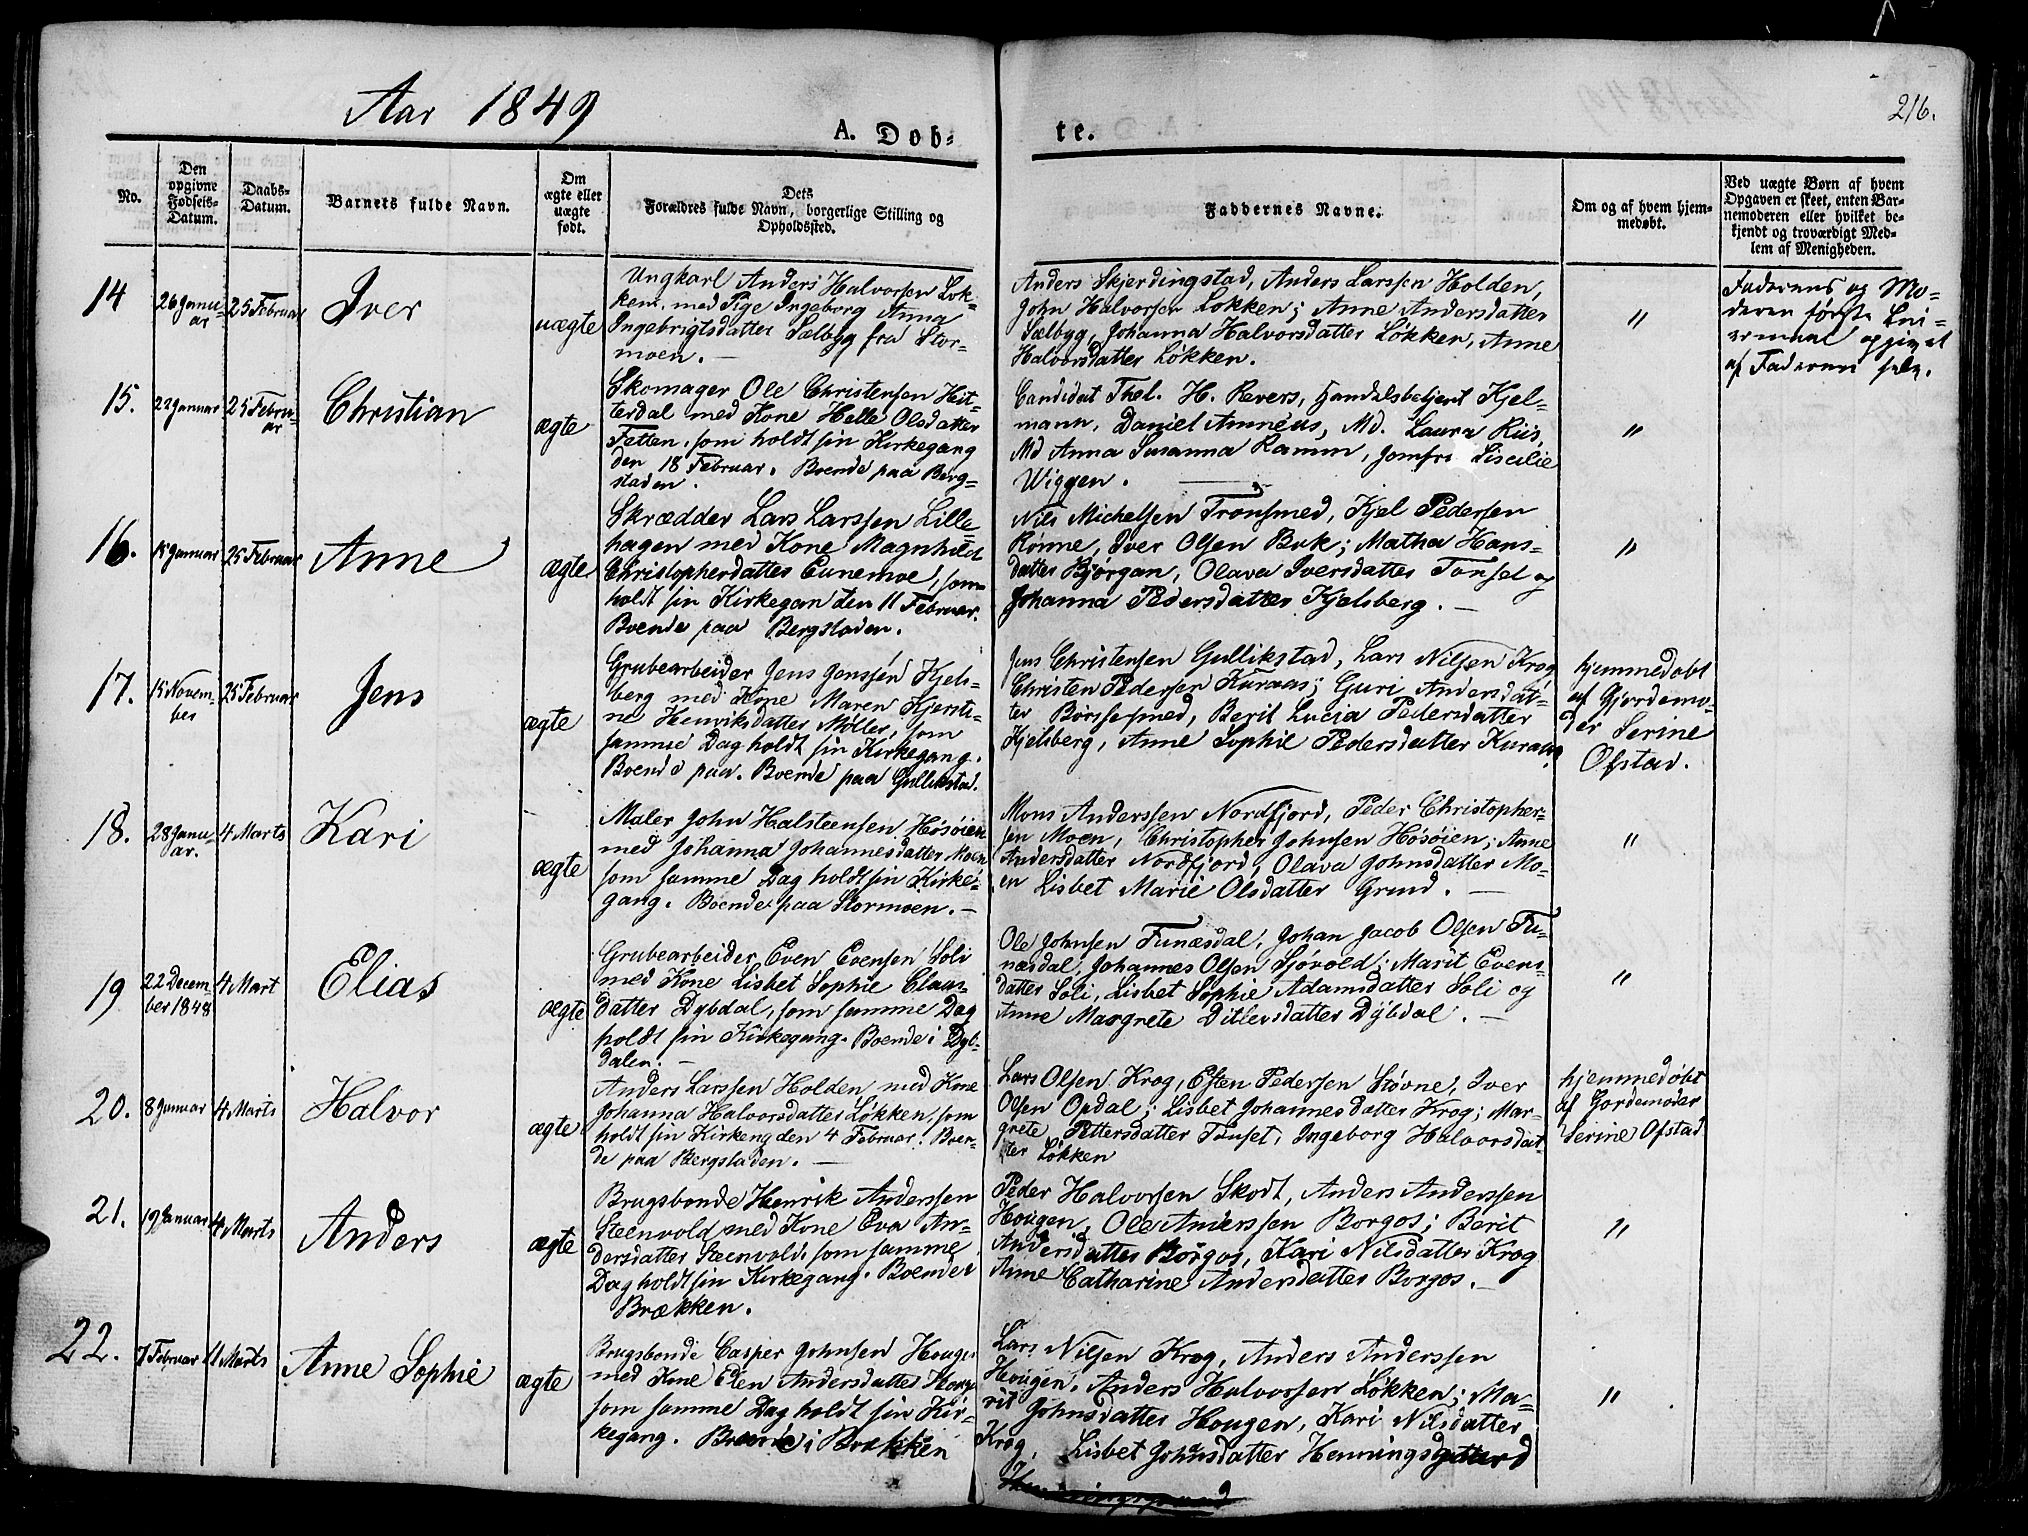 Aar 1849
216.
A. Døb-
te.
No.
Den
opgivne
Fødsels-
Datum.
Daabs-
Datum.
Barnets fulde Navn.
Om
ægte eller
uægte
født.
Dets
Forældres fulde Navn, borgerlige Stilling og
Opholdssted.
Faddernes Navne.
Om og af hvem hjem-
medøbt.
Ved uægte Børn af hvem
Opgaven er skeet, enten Bar-
nemoderen eller hvilket be-
kjendt og troværdigt Med-
lem af Menigheden.
14
26 Janu-
ar
25 Februar
Iver
uægte
Ungkarl Anders Halvorsen Løk-
ken med Pige Ingeborg Anna
Ingebrigtsdatter Sælbyg fra Stor-
moen. —
Anders Skjerdingstad, Anders Larsen Holden,
John Halvorsen Løkken; Anne Andersdatter
Sælbyg, Johanna Halvorsdatter Løkken, Anne
Halvorsdatter Løkken.
"
Faderens og Mo-
deren første Lei-
ermaal opgivet
af Faderen selv.
15.
22 Januar
25 Febru-
ar
Christian
ægte
Skomager Ole Christensen Heit-
terdal med Kone Helle Olsdatter
Tetten, som holdt sin Kirkegang
den 18 Februar. Boende paa Berg-
staden.
Candidat Thel. H. Revers, Handelsbetjent Kjel-
mann, Daniel Amnéus, Md. Laura Riis,
Md Anna Susanna Ramm, Jomfru Siscilie
Wiggen.
"
16.
18 Januar
25 Februar
Anne
ægte
Skrædder Lars Larssen Lille
hagen med Kone Magnhild
Christopherdatter Eunemoe, som
holdt sin Kirkegan den 11 Februar.
Boende paa Bergstaden.
Nils Michelsen Tronsmed, Kjel Pedersen
Rønne, Iver Olsen Buk; Matha Hans-
datter Bjørgan, Olava Iversdatter Tønset og
Johanna Pedersdatter Kjelsberg. —
"
17.
15 Novem-
ber
25 Februar
Jens
ægte
Grubearbeider Jens Jenssen Kjels-
berg med Kone Maren Kjersti-
ne Henriksdatter Møller, som
samme Dag holdt sin Kirkegang.
Boende paa. Boende paa Gullikstad.
Jens Christensen Gullikstad, Lars Nilsen Krog
Christen Pedersen Kuraas; Guri Andersdat-
ter Børssesmed, Berit Lucia Pedersdatter
Kjelsberg, Anne Sophie Pedersdatter Kuraas.
hjemmedøbt
af Gjordemo-
der Serine
Ofstad.
18.
28 Janu-
ar.
4 Marts
Kari
ægte
Maler John Halsteensen Høsøien
med Johanna Johannesdatter Moen
som samme Dag holdt sin Kirke-
gang. Boende paa Stormoen. —
Mons Anderssen Nordfjord, Peder Christopher-
sen Moen, Christopher Johnsen Høsøien; Anne
Andersdatter Nordfjord, Olava Johnsdatter Mo-
en Lisbet Marie Olsdatter Grind. —
"
19
22 Decem-
ber 1848
4 Mart
Elias
ægte
Grubearbeider Even Evensen Soli
med Kone Lisbet Sophie Claus-
datter Dybdal, som samme Dag
holdt sin Kirkegang. Boende i Dyb-
dalen. —
Ole Johnsen Funæsdal, Johan Jacob Olsen Fu-
næsdal, Johannes Olsen Sjøvold; Marit Evens-
datter Soli, Lisbet Sophie Adamsdatter Soli og
Anne Margrete Ditlevsdatter Dybdal. —
"
20.
8 Januar
4 Marts
Halvor
ægte
Anders Larssen Holden med Kone
Johanna Halvorsdatter Løkken, som
holdt sin Kirkeng den 4 Februar. Boen-
de paa Bergstaden. —
Lars Olsen Krog, Esten Pedersen Støvne, Iver
Olsen Opdal; Lisbet Johannesdatter Krog; Mar-
grete Pettersdatter Tønset, Ingeborg Halvorsdat-
ter Løkken
hjemmedøbt
af Gordemoder
Serine Ofstad
21.
19 Januar
4 Marts
Anders
ægte
Brugsbonde Henrik Anderssen
Steenvold med Kone Eva An-
dersdatter Steenvold, som samme
Dag holdt sin Kirkegang. Boende i
Brækken.
Peder Halvorsen Skodt, Anders Anderssen
Hougen, Ole Anderssen Borgos; Berit
Andersdatter Borgos, Kari Nilsdatter Krog
Anne Catharine Andersdatter Borgos. —
"
22.
7 Februar
11 Marts
Anne Sophie
ægte
Brugsbonde Casper Johnsen Hougen
med Kone Elen Andersdatter Houge
som samme Dag holdt sin Kir-
kegang. Boende i Brækken
Lars Nilsen Krog, Anders Anderssen
Hougen, Anders Halvorsen Løkken; Ma-
rit Johnsdatter Hougen, Kari Nilsdatter
Krog, Lisbet Johnsdatter Henningsgaard
"